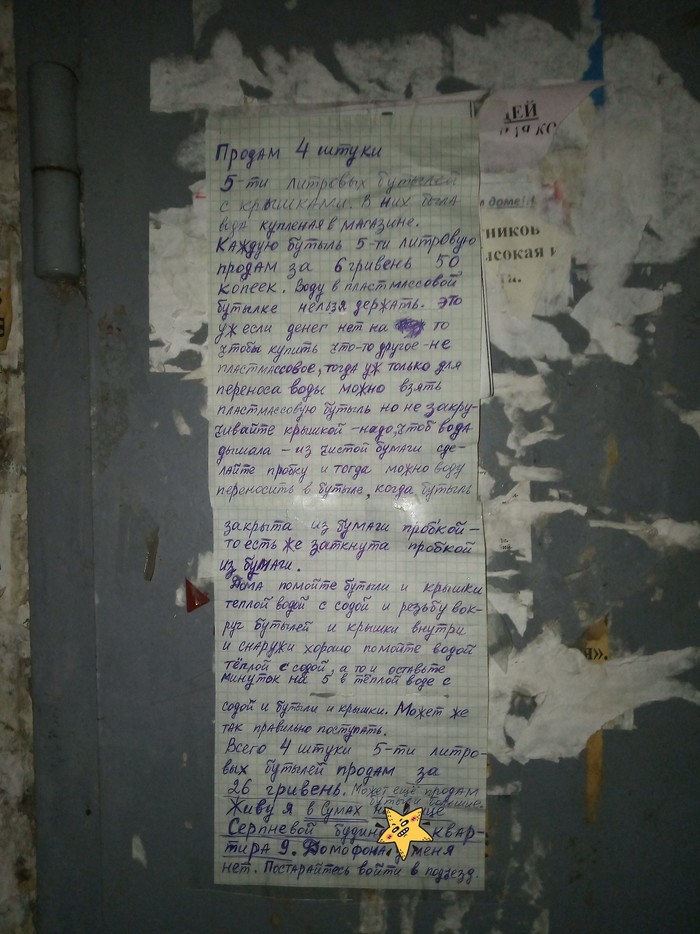 Продам 4 штуки
5-ти литровых бутылей
с крышками. В них была
вода купленая в магазине.
Каждую бутыль 5-ти литровую
продам за 6 гривень 50
копеек. Воду в пластмассовой
бутылке нельзя держать. Это
уж если денег нет на то
чтобы купить что-то другое - не
пластмассовое, тогда уж только для
переноса воды можно взять
пластмассовую бутыль но не закру-
чивайте крышкой - надо, чтоб вода
дышала - из чистой бумаги сде-
лайте пробку и тогда можно воду
переносить в бутыле, когда бутыль
закрыта из бумаги пробкой -
то есть же заткнута пробкой
из бумаги.
Дома помойте бутыли и крышки
теплой водой с содой и резьбу вок-
руг бутылей и крышки внутри
и снаружи хорошо помойте водой
тёплой с содой, а то и оставьте
минуток на 5 в тёплой воде с
содой и бутыли и крышки. Может же
так правильно поступать.
Всего 4 штуки 5-ти литро-
вых бутылей продам за
26 гривень. Может ещё продам
бутыли
Живу я в Сумах
Серпневой будин квар-
тира 9. Домофона у меня
нет. Постарайтесь войти в подъезд.
ЦЕЙ
доме!!
ников
ысокая и
та.